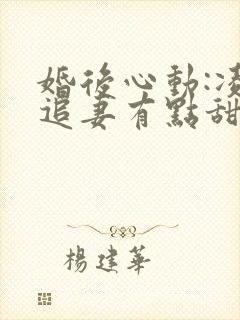 婚後心動:凌
追妻有點甜
楊建華